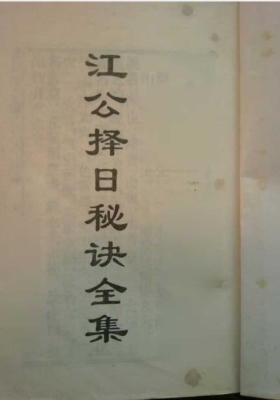 江公择日秘诀全集